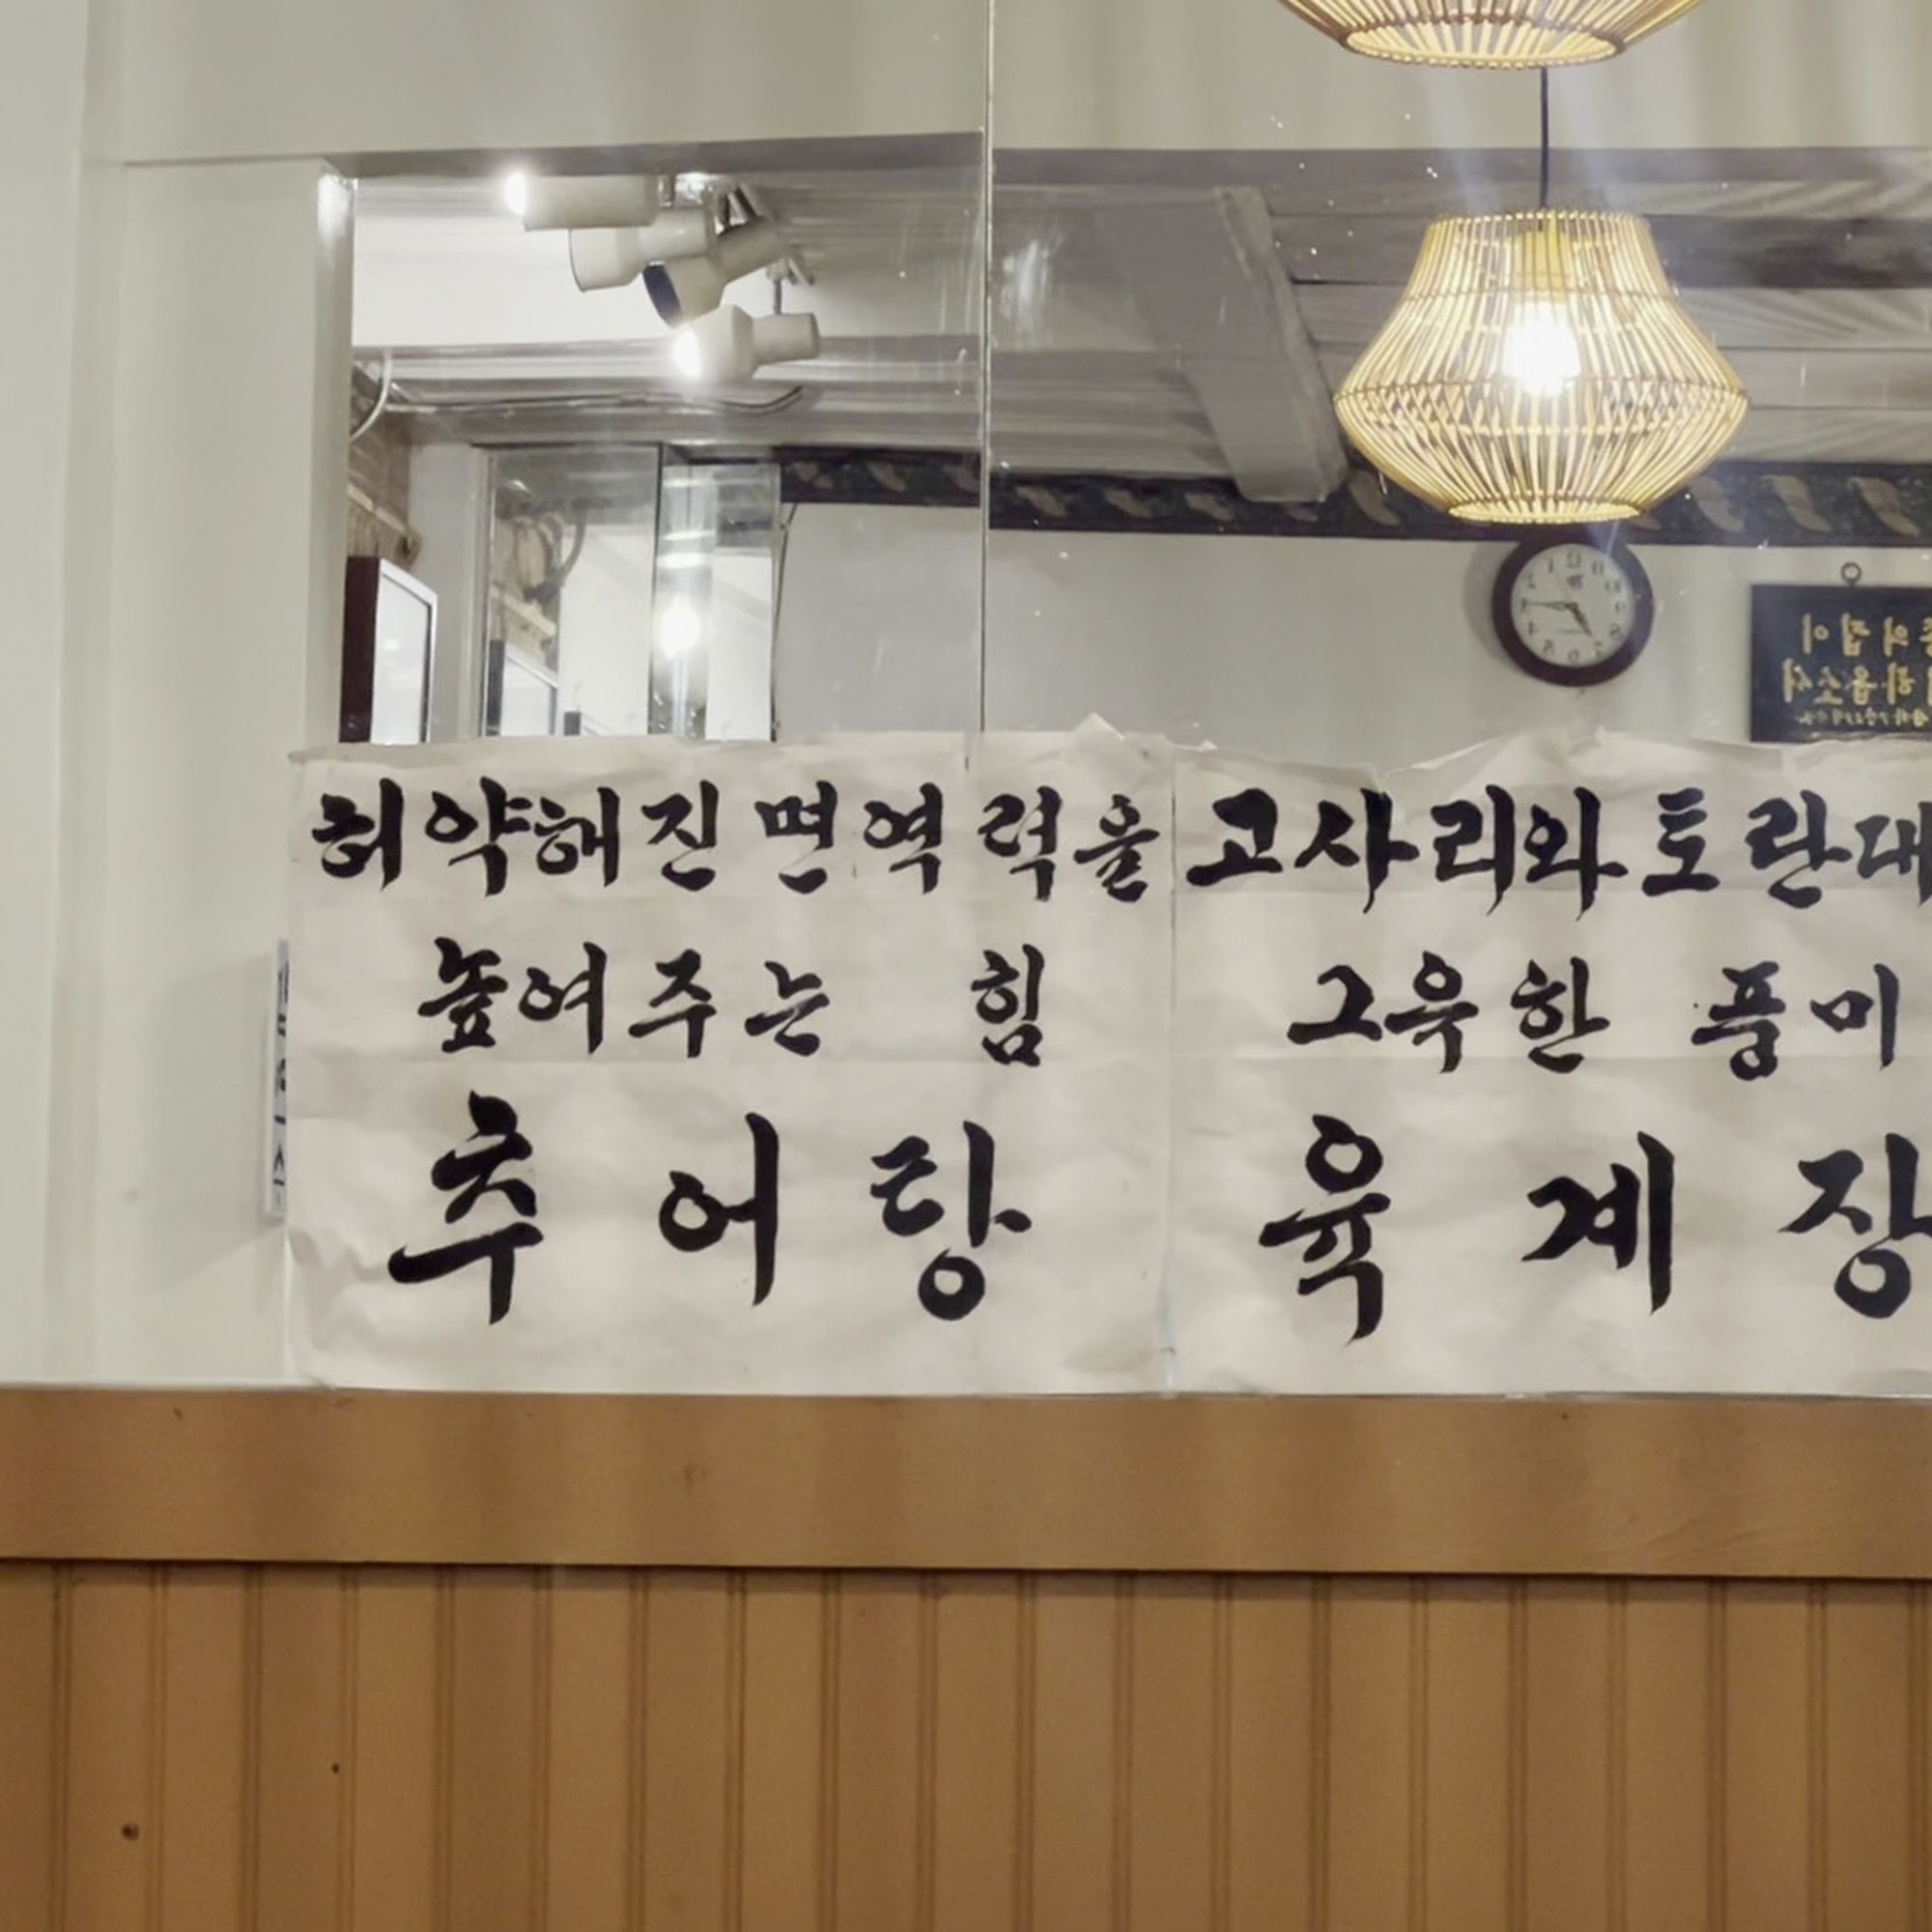 허약해진 면역력을
높여주는 힘
추어탕
고사리와 토란대
그윽한 풍미
육계장